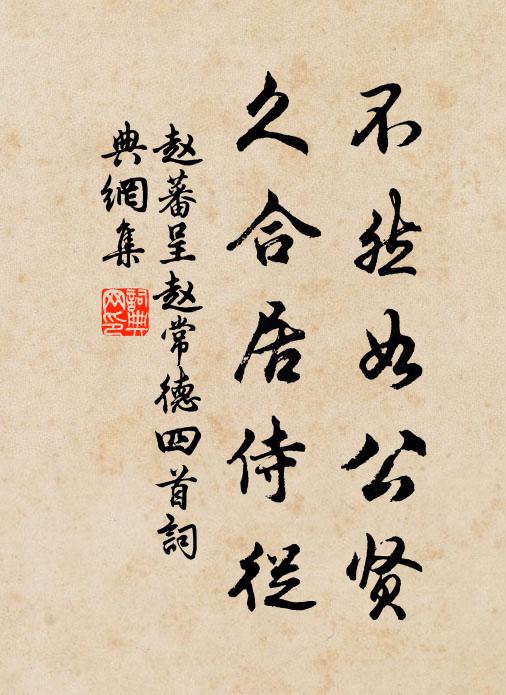 不然如公贤
久合居侍從
赵蕃呈赵常德四首詞
典網集
詞典
网印